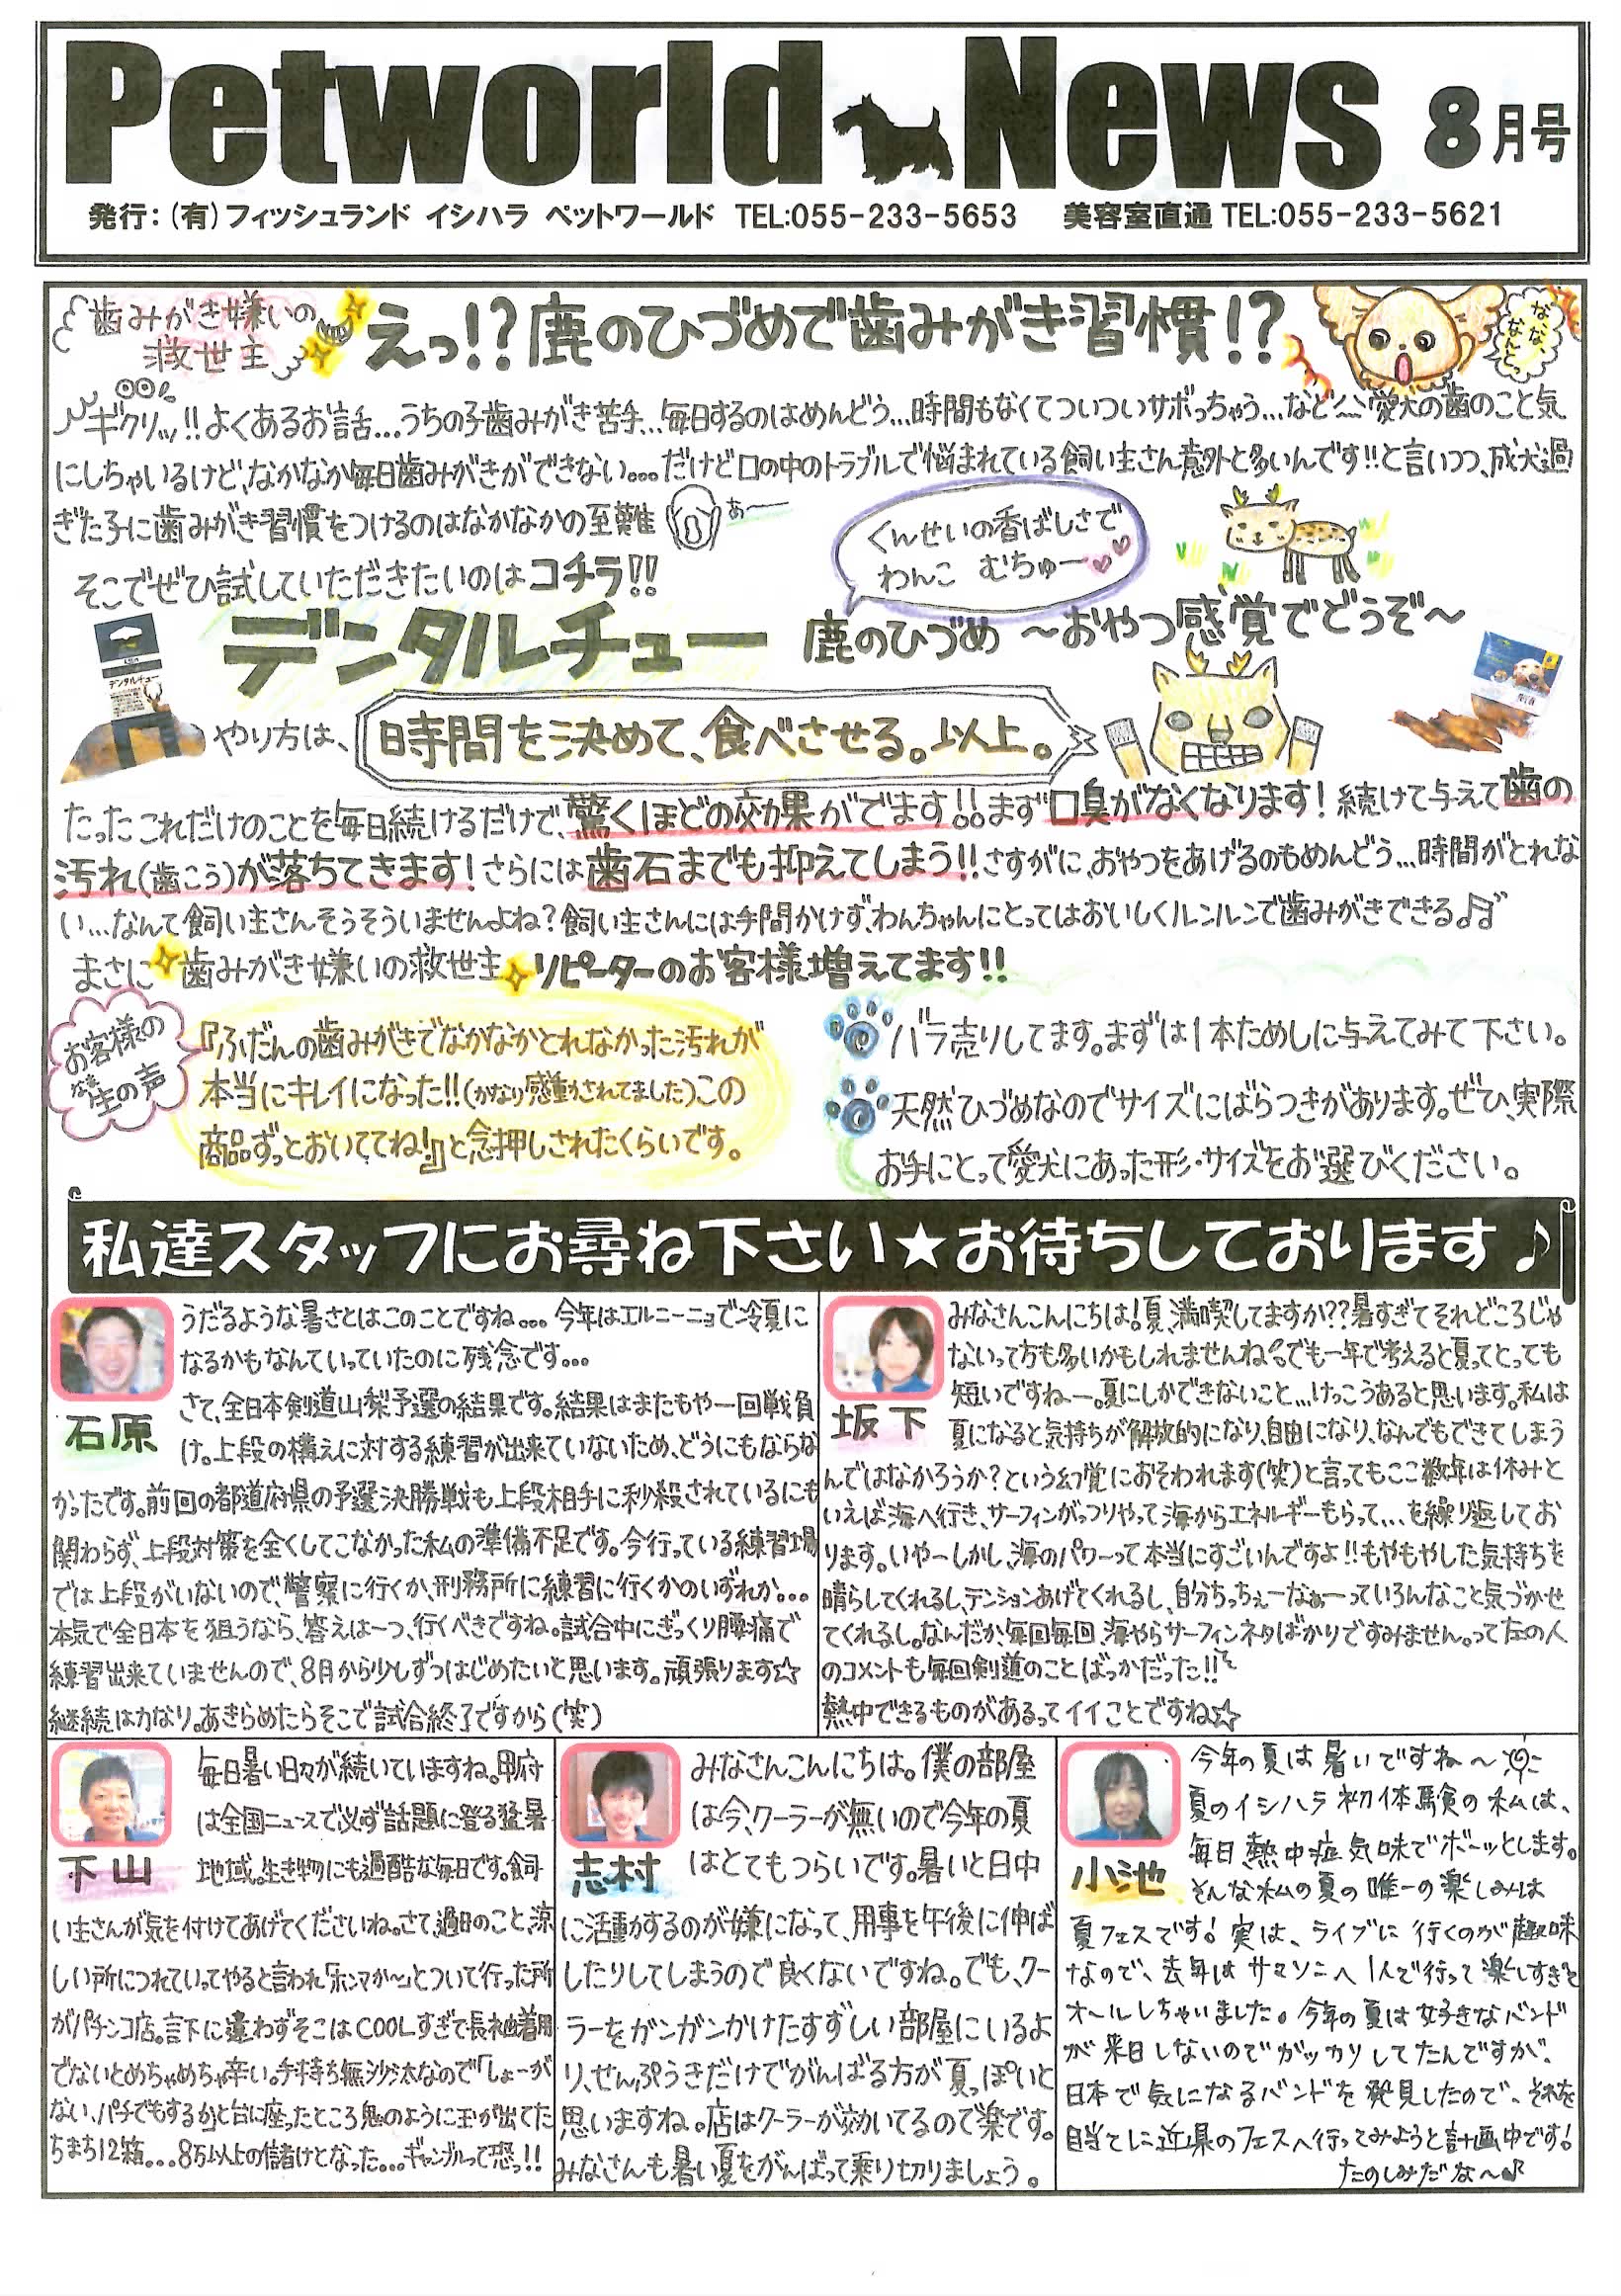 Petworld News 8月号
発行：（有）フィッシュランド イシハラ ペットワールド TEL:055-233-5653 美容室直通 TEL:055-233-5621
歯みがき嫌いの
救世主
えっ!?鹿のひづめで歯みがき習慣!?
なな、
なんと
ギクリッ!!よくあるお話…うちの子歯みがき苦手…毎日するのはめんどう…時間もなくてついついサボっちゃう…など 愛犬の歯のこと気
にしちゃいるけど、なかなか毎日歯みがきができない…だけど口の中のトラブルで悩まれている飼い主さん意外と多いんです!!と言いつつ、成犬過
ぎた子に歯みがき習慣をつけるのはなかなかの至難 あー
くんせいの香ばしさで
わんこ むちゅー
そこでぜひ試していただきたいのはコチラ!!
デンタルチュー 鹿のひづめ ～おやつ感覚でどうぞ～
デンタルチュー
やり方は、時間を決めて、食べさせる。以上。
たったこれだけのことを毎日続けるだけで、驚くほどの効果がでます!!まず口臭がなくなります!続けて与えて歯の
汚れ(歯こう)が落ちてきます!さらには歯石までも抑えてしまう!!さすがに、おやつをあげるのもめんどう…時間がとれな
い…なんて飼い主さんそうそういませんよね?飼い主さんには手間かけず、わんちゃんにとってはおいしくルンルンで歯みがきできる♪
まさに 歯みがき嫌いの救世主 リピーターのお客様増えてます!!
お客様の
生の声
なま
『ふだんの歯みがきでなかなかとれなかった汚れが
本当にキレイになった!!(かなり感動されてました)この
商品ずっとおいててね!』と念押しされたくらいです。
バラ売りしてます。まずは1本ためしに与えてみて下さい。
天然ひづめなのでサイズにばらつきがあります。ぜひ、実際
お手にとって愛犬にあった形・サイズをお選びください。
私達スタッフにお尋ね下さい★お待ちしております♪
石原
うだるような暑さとはこのことですね… 今年はエルニーニョで冷夏に
なるかもなんていっていたのに残念です…
さて、全日本剣道山梨予選の結果です。結果はまたもや一回戦負
け。上段の構えに対する練習が出来ていないため、どうにもならな
かったです。前回の都道府県の予選決勝戦も上段相手に秒殺されているにも
関わらず、上段対策を全くしてこなかった私の準備不足です。今行っている練習場
では上段がいないので、警察に行くか、刑務所に練習に行くかのいずれか…
本気で全日本を狙うなら、答えは一つ、行くべきですね。試合中にぎっくり腰痛で
練習出来ていませんので、8月から少しずつはじめたいと思います。頑張ります☆
継続は力なり。あきらめたらそこで試合終了ですから(笑)
坂下
みなさんこんにちは!夏、満喫してますか??暑すぎてそれどころじゃ
ないって方も多いかもしれませんね。でも一年で考えると夏ってとっても
短いですねー。夏にしかできないこと…けっこうあると思います。私は
夏になると気持ちが解放的になり、自由になり、なんでもできてしまう
んではなかろうか?という幻覚におそわれます(笑)と言ってもここ数年は休みと
いえば海へ行き、サーフィンがっつりやって海からエネルギーもらって…を繰り返してお
ります。いやーしかし、海のパワーって本当にすごいんですよ!!もやもやした気持ちを
晴らしてくれるし、テンションあげてくれるし、自分ちっちぇーなぁーっていろんなこと気づかせ
てくれるし。なんだか、毎回毎回、海やらサーフィンネタばかりですみません。って左の人
のコメントも毎回剣道のことばっかだった!!
熱中できるものがあるってイイことですね☆
下山
毎日暑い日々が続いていますね。甲府
は全国ニュースで必ず話題に登る猛暑
地域。生き物にも過酷な毎日です。飼
い主さんが気を付けてあげてくださいね。さて、過日のこと、涼
しい所につれていってやると言われ「ホンマか～」とついて行った所
がパチンコ店。言下に違わずそこはCOOLすぎて長袖着用
でないとめちゃめちゃ辛い。手持ち無沙汰なので「しょーが
ない、パチでもするか」と台に座ったところ鬼のように玉が出てた
ちまち12箱…8万以上の儲けとなった…ギャンブルって恐っ!!
志村
みなさんこんにちは。僕の部屋
は今、クーラーが無いので今年の夏
はとてもつらいです。暑いと日中
に活動するのが嫌になって、用事を午後に伸ば
したりしてしまうので良くないですね。でも、クー
ラーをガンガンかけたすずしい部屋にいるよ
り、せんぷうきだけでがんばる方が夏っぽいと
思いますね。店はクーラーが効いてるので楽です。
みなさんも暑い夏をがんばって乗り切りましょう。
小池
今年の夏は暑いですね～
夏のイシハラ初体験の私は、
毎日熱中症気味でボーッとします。
そんな私の夏の唯一の楽しみは
夏フェスです!実は、ライブに行くのが趣味
なので、去年はサマソニへ1人で行って楽しすぎて
オールしちゃいました。今年の夏は好きなバンド
が来日しないのでガッカリしてたんですが、
日本で気になるバンドを発見したので、それを
目当てに近県のフェスへ行ってみようと計画中です!
たのしみだな～♪